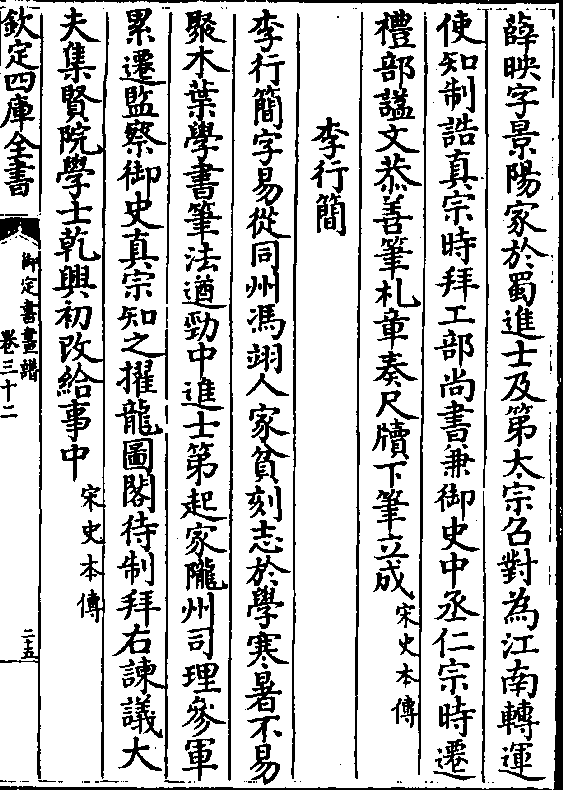 薛映字景陽家於蜀進士及第太宗召對為江南轉運
使知制誥真宗時拜工部尚書兼御史中丞仁宗時遷
禮部諡文恭善筆札章奏尺牘下筆立成宋史本傳
李行簡
李行簡字易從同州馮翊人家貧刻志於學寒暑不易
聚木葉學書筆法遒勁中進士第起家隴州司理參軍
累遷監察御史真宗知之擢龍圖閣待制拜右諫議大
夫集賢院學士乾興初改給事中宋史本傳
欽定四庫全書
御定書畫譜
卷三十二
二五